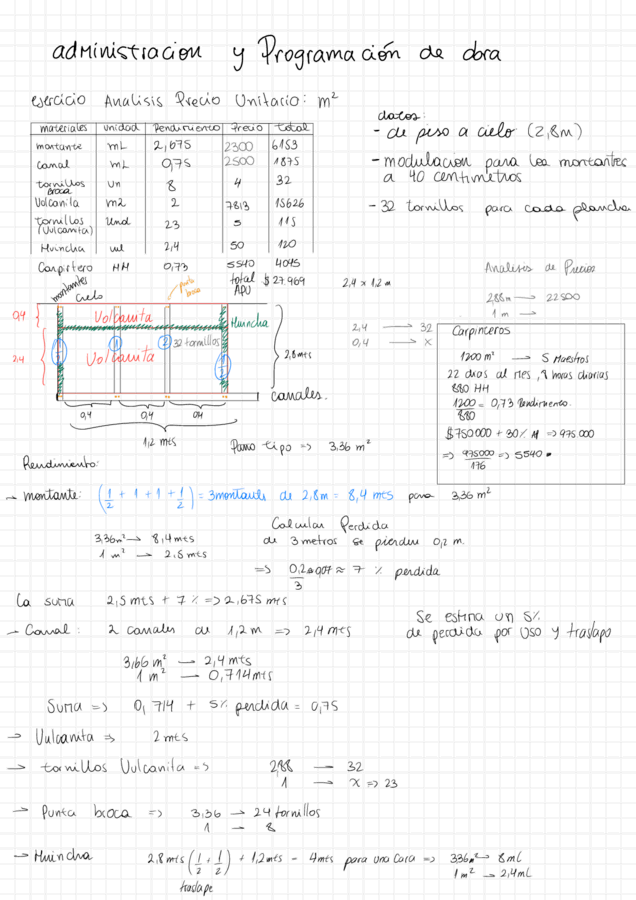 administracion y Programación de obra
ejercicio Analisis Precio Unitario: m²
materiales unidad Rendimiento Precio total
montante mL 2,675 2300 6153
Canal mL 0,75 2500 1875
tornillos broca un 8 4 32
Volcanita m2 2 7813 15626
tornillos (Vulcanita) Und 23 5 115
Huincha ml 2,4 50 120
Carpintero HH 0,73 5540 4045
total APU $27.969
datos:
- de piso a cielo (2,8m)
- modulacion para los montantes
a 40 centimetros
- 32 tornillos para cada plancha
Analisis de Precios
2,88m → 22500
1m →
2,4 x 1,2 m
2,4 → 32
0,4 → x
montantes
Cielo
punta broca
0,4
Volcanita
Huincha
2,4
Volcanita
1
2
32 tornillos
1/2
1/2
2,8mts
canales.
0,4 0,4 0,4
1,2 mts
Carpinteros
1200 m² → 5 Maestros
22 dias al mes, 8 horas diarias
880 HH
1200/880 = 0,73 Rendimiento.
$750000 + 30% => 975000
=> 975000/176 => 5540
Paño tipo => 3,36 m²
Rendimiento:
- montante: (1/2 + 1 + 1 + 1/2) = 3montantes de 2,8m = 8,4 mts para 3,36 m²
3,36m² → 8,4mts
1 m² — 2,5mts
Calcular Perdida
de 3 metros se pierden 0,2 m.
=> 0,2/3 = 0,07 ≈ 7 % perdida
la suma 2,5mts + 7% => 2,675 mts
Se estima un 5%
de perdida por uso y traslapo
- Canal: 2 canales de 1,2m => 2,4mts
3,66 m² → 2,4mts
1 m² → 0,714mts
Suma => 0,714 + 5% perdida = 0,75
→ Vulcanita => 2 mts
→ tornillos Vulcanita => 2,88 — 32
1 → x => 23
→ Punta broca => 3,36 → 24 tornillos
1 — 8
→ Huincha 2,8mts (1/2 + 1/2) + 1,2mts - 4mts para una cara => 3,36m² → 8mL
1m² → 2,4mL
traslape